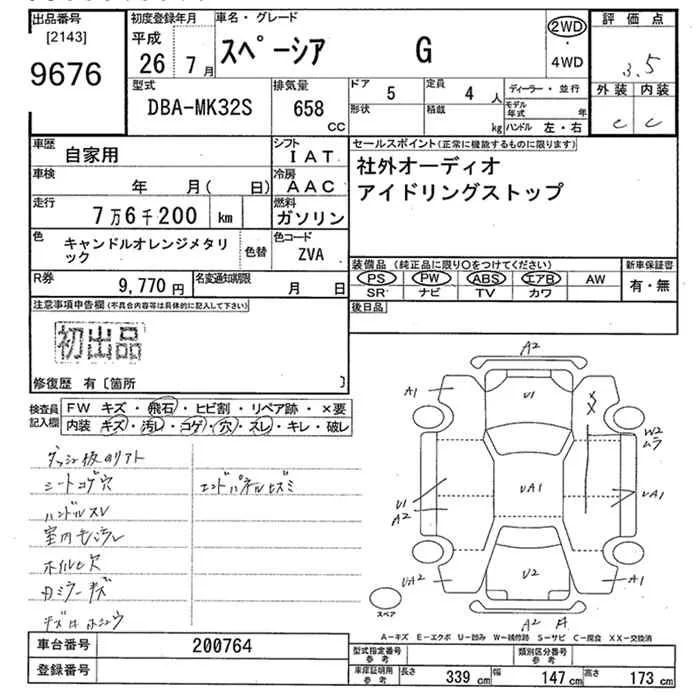 出品番号 初度登録年月 車名・グレード 2WD 評価点
[2143] 平成 スペーシア G ・ 3.5
9676 26年 7月 4WD 外装 内装
型式 排気量 ドア 5 定員 4人 ディーラー・並行 C C
DBA-MK32S 658 CC 形状 積載 kg モデル年式 年 ハンドル 左・右
車歴 自家用 シフト IAT セールスポイント(正常に機能するものに限ります)
車検 年 月( 日) 冷房 AAC 社外オーディオ
走行 7万6千200 km 燃料 ガソリン アイドリングストップ
色 キャンドルオレンジメタリック 色替 色コード ZVA
装備品 (純正品に限り○をつけてください) 新車保証書
R券 9,770円 名変通知期限 月 日 PS PW ABS エアB AW 有・無
SR ナビ TV カワ
注意事項申告欄(不具合内容等は具体的に記入して下さい) 後日品
初出品
修復歴 有 [箇所 ]
検査員記入欄 FW キズ・飛石・ヒビ割・リペア跡・×要
内装 キズ・汚レ・コゲ・穴・スレ・キレ・破レ
シートコゲ穴 エンドパネルヒズミ
ハンドルスレ
A2
A1 U1 X X
W2 ムラ
U1 A2 UA1 UA1
UA2 U2 A1
スペア A2
A-キズ E-エクボ U-凹み W-補修跡 S-サビ C-腐食 XX-交換済
車台番号 200764 型式指定番号 参考 類別区分番号 参考
登録番号 車庫証明用 参考 長さ 339 cm 幅 147 cm 高さ 173 cm